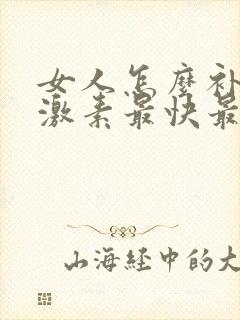 女人怎麼补
激素最快最
山海经中的大